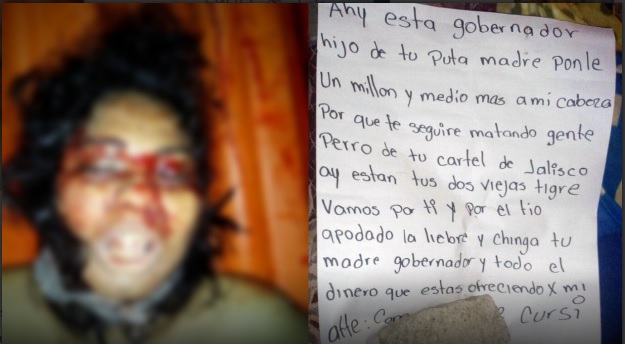 Ahy esta gobernador
hijo de tu Puta madre Ponle
Un millon y medio mas a mi cabeza
Por que te seguire matando gente
Perro de tu cartel de Jalisco
ay estan tus dos viejas tigre
Vamos Por ti y Por el tio
apodado la liebre y chinga tu
madre gobernador y todo el
dinero que estas ofreciendo X mi
atte: Com O Cursi